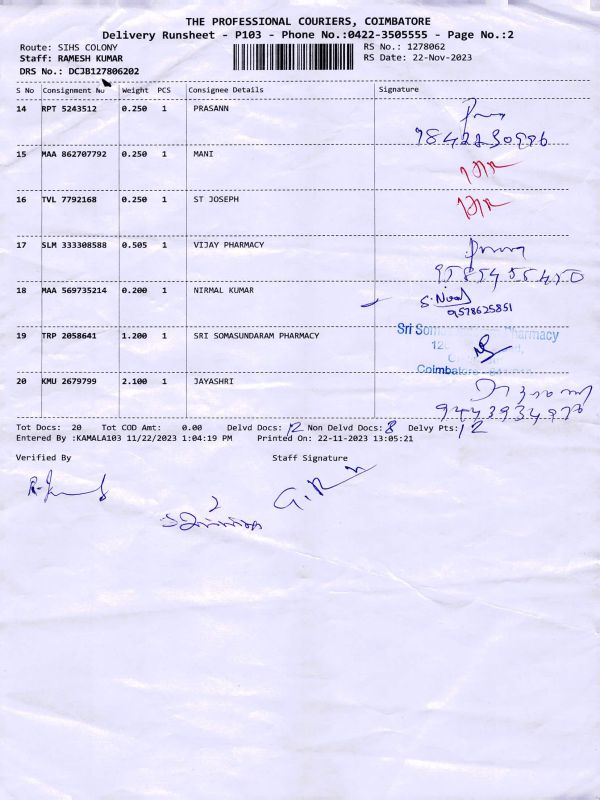 THE PROFESSIONAL COURIERS, COIMBATORE
Delivery Runsheet - P103 - Phone No.:0422-3505555 - Page No.:2
Route: SIHS COLONY RS No.: 1278062
Staff: RAMESH KUMAR RS Date: 22-Nov-2023
DRS No.: DCJB127806202
S No Consignment No Weight PCS Consignee Details Signature
14 RPT 5243512 0.250 1 PRASANN
9842230996
15 MAA 862707792 0.250 1 MANI
16 TVL 7792168 0.250 1 ST JOSEPH
17 SLM 333308588 0.505 1 VIJAY PHARMACY
9585455450
18 MAA 569735214 0.200 1 NIRMAL KUMAR
9578625851
19 TRP 2058641 1.200 1 SRI SOMASUNDARAM PHARMACY
Sri Som Pharmacy
Coimbatore
20 KMU 2679799 2.100 1 JAYASHRI
9443934970
Tot Docs: 20 Tot COD Amt: 0.00 Delvd Docs: 12 Non Delvd Docs: 8 Delvy Pts: 12
Entered By :KAMALA103 11/22/2023 1:04:19 PM Printed On: 22-11-2023 13:05:21
Verified By Staff Signature